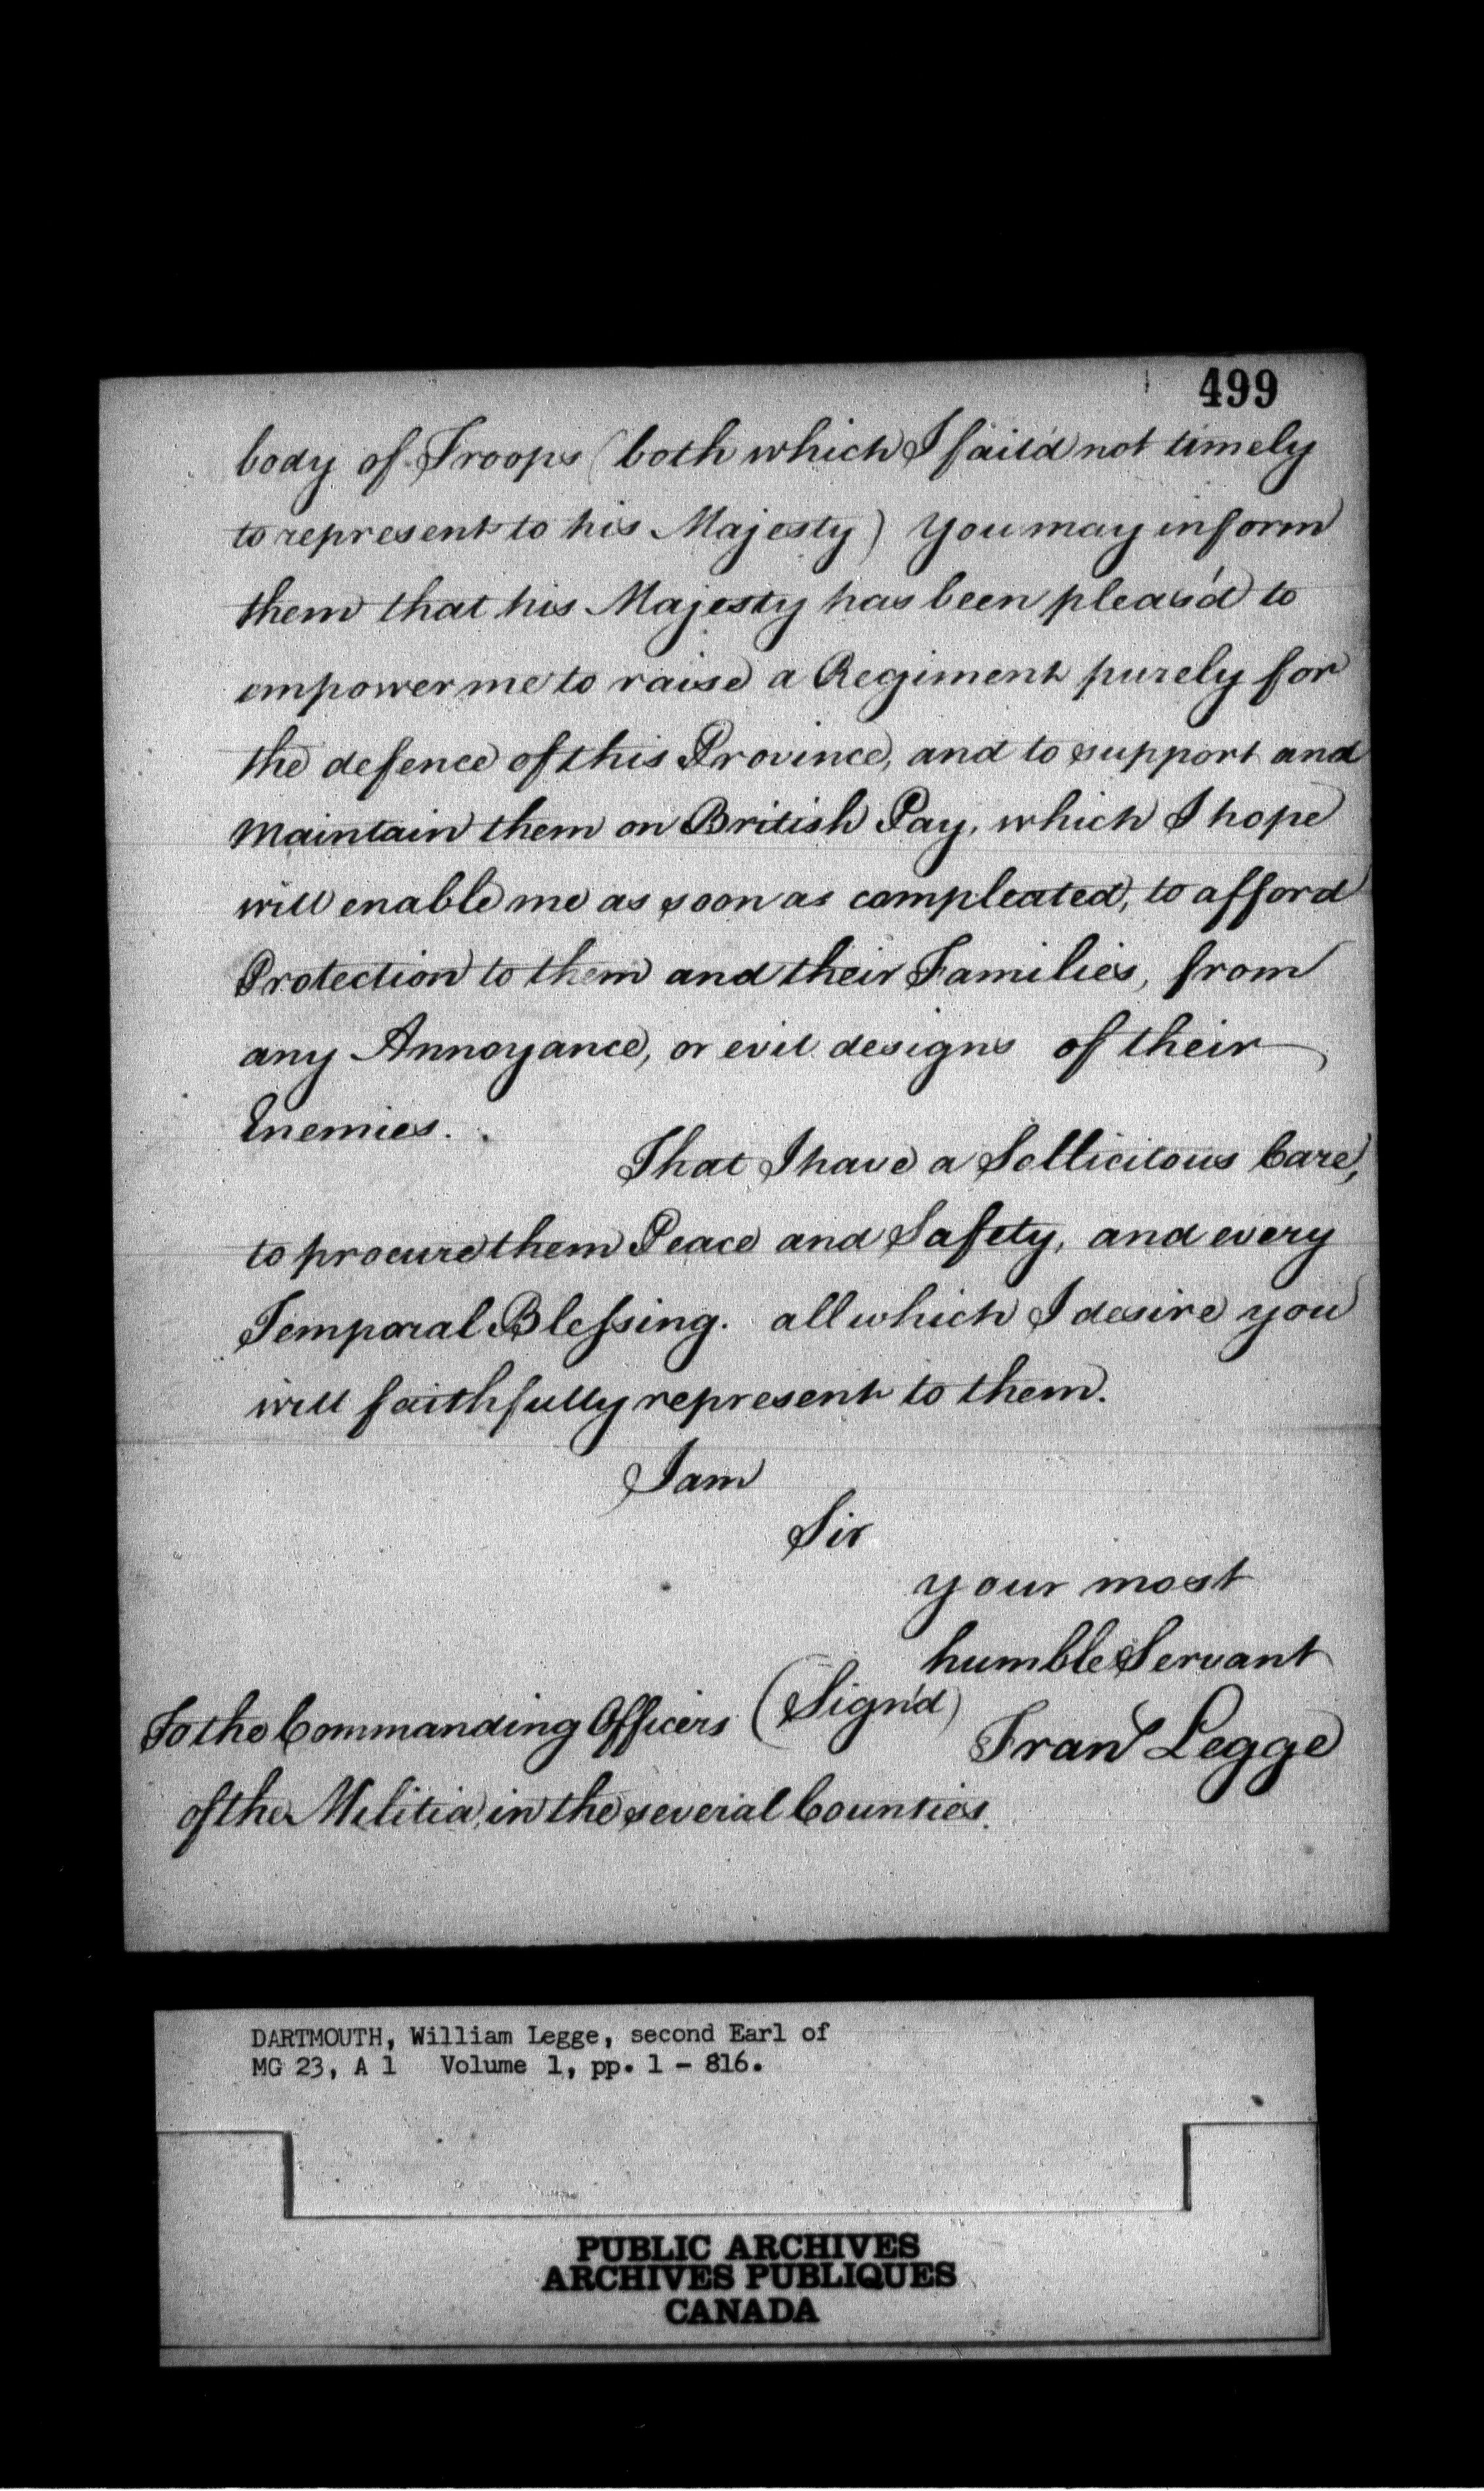 499
body of Troops (both which I fail'd not timely
to represent to his Majesty) you may inform
them that his Majesty has been pleas'd to
empower me to raise a Regiment purely for
the defence of this Province, and to support and
Maintain them on British Pay, which I hope
will enable me as soon as compleated, to afford
Protection to them and their Families, from
any Annoyance, or evil designs of their
Enemies.
That I have a Sollicitous Care,
to procure them Peace and Safety, and every
Temporal Blessing. all which I desire you
will faithfully represent to them.
I am
Sir
your most
humble Servant
(Sign'd)
Fran Legge
To the Commanding Officers
of the Militia, in the several Counties.
DARTMOUTH, William Legge, second Earl of
MG 23, A 1 Volume 1, pp. 1 - 816.
PUBLIC ARCHIVES
ARCHIVES PUBLIQUES
CANADA